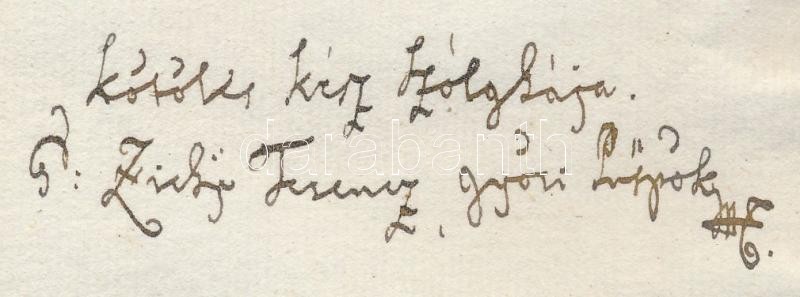 kötöles kész szólghája.
G: Zichy Ferencz, győri Püspök mk.
darabanth